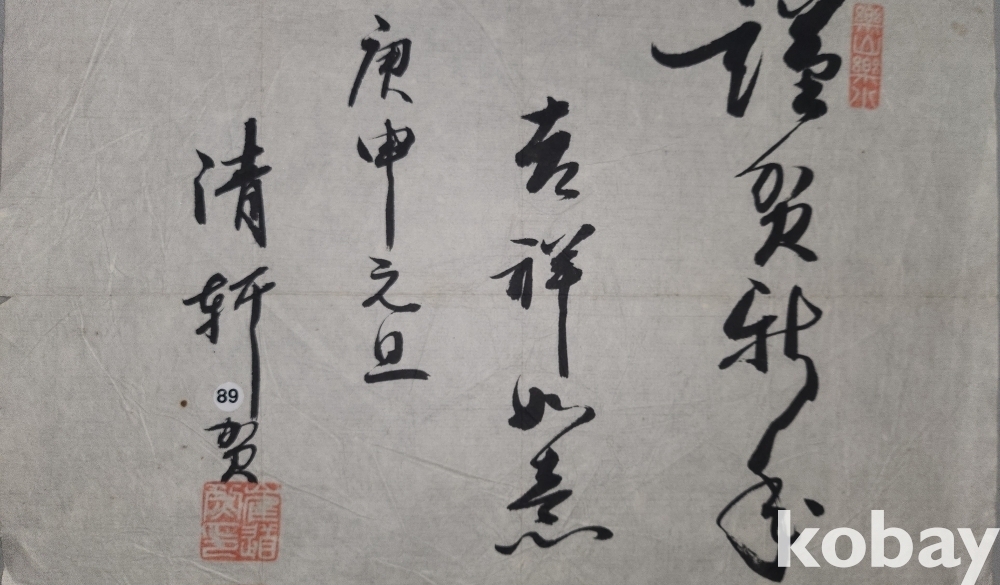 謹賀新年
吉祥如意
庚申元旦
清軒賀
樂山樂水
89
kobay